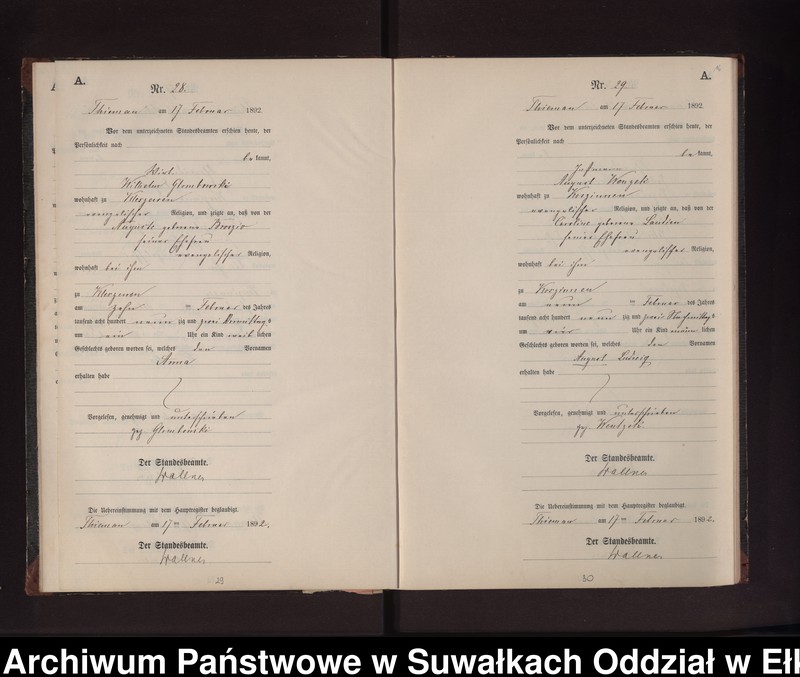 A.
Nr. 28.
Thiemau am 17 Februar 1892.
Vor dem unterzeichneten Standesbeamten erschien heute, der
Persönlichkeit nach
be kannt,
Wirt
Wilhelm Glembowski
wohnhaft zu
evangelischer Religion, und zeigte an, daß von der
Auguste geborene
seiner Ehefrau
evangelischer Religion,
wohnhaft bei ihm
zu
am zehn ten Februar des Jahres
tausend acht hundert neun zig und zwei Vormittags
um ein Uhr ein Kind weib lichen
Geschlechts geboren worden sei, welches den Vornamen
Anna
erhalten habe
Vorgelesen, genehmigt und unterschrieben
gez. Glembowski
Der Standesbeamte.
Wallner
Die Uebereinstimmung mit dem Hauptregister beglaubigt.
Thiemau am 17ten Februar 1892.
Der Standesbeamte.
Wallner
29
A.
Nr. 29.
Thiemau am 17 Februar 1892
Vor dem unterzeichneten Standesbeamten erschien heute, der
Persönlichkeit nach
be kannt,
Instmann
August
wohnhaft zu
evangelischer Religion, und zeigte an, daß von der
Caroline geborene
seiner Ehefrau
evangelischer Religion,
wohnhaft bei ihm
zu
am neun ten Februar des Jahres
tausend acht hundert neun zig und zwei Nachmittags
um vier Uhr ein Kind männ lichen
Geschlechts geboren worden sei, welches den Vornamen
August Ludwig
erhalten habe
Vorgelesen, genehmigt und unterschrieben
gez.
Der Standesbeamte.
Wallner
Die Uebereinstimmung mit dem Hauptregister beglaubigt.
Thiemau am 17ten Februar 1892.
Der Standesbeamte.
Wallner
30
Archiwum Państwowe w Suwałkach Oddział w Ełk